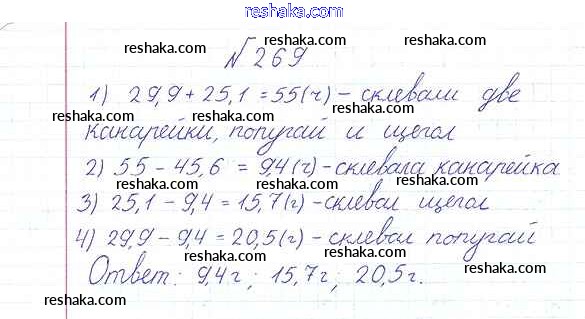 reshaka.com
№269
reshaka.com reshaka.com
1) 29,9 + 25,1 = 55(г) - склевали две
reshaka.com reshaka.com
канарейки, попугай и щегол
reshaka.com reshaka.com
2) 55 - 45,6 = 9,4(г) - склевала канарейка
reshaka.com reshaka.com
3) 25,1 - 9,4 = 15,7(г) - склевал щегол
reshaka.com reshaka.com
4) 29,9 - 9,4 = 20,5(г) - склевал попугай
reshaka.com reshaka.com
Ответ: 9,4г; 15,7г; 20,5г.
reshaka.com reshaka.com